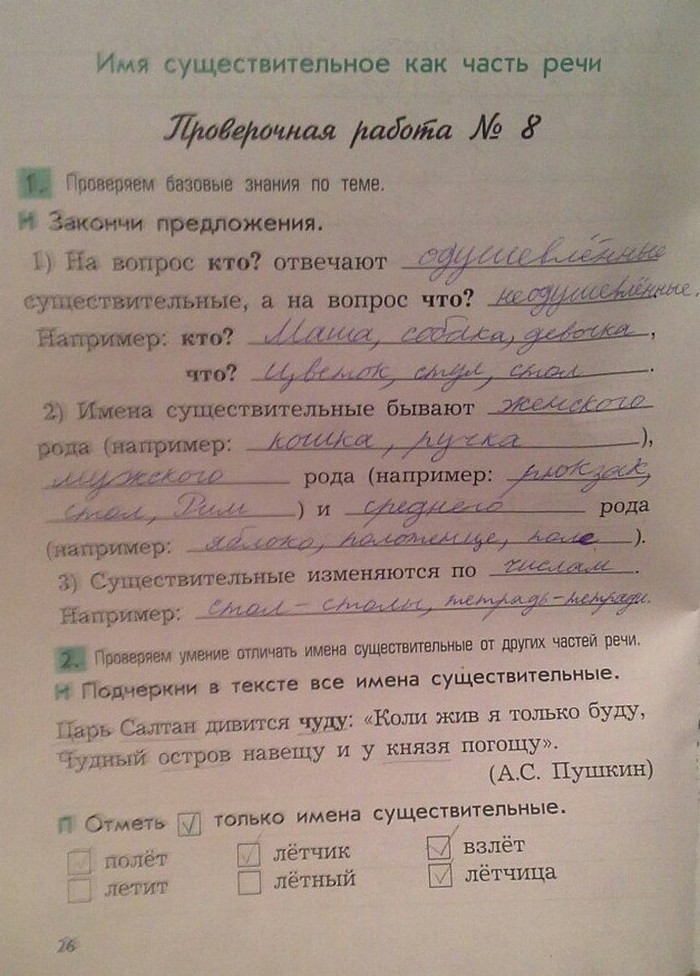 Имя существительное как часть речи
Проверочная работа № 8
1. Проверяем базовые знания по теме.
Н Закончи предложения.
1) На вопрос кто? отвечают одушевлённые
существительные, а на вопрос что? неодушевлённые.
Например: кто? Маша, собака, девочка,
что? Цветок, стул, стол.
2) Имена существительные бывают женского
рода (например: кошка, ручка),
мужского рода (например: рюкзак,
стол, Рим) и среднего рода
(например: яблоко, полотенце, поле).
3) Существительные изменяются по числам.
Например: стол-столы, тетрадь-тетради.
2. Проверяем умение отличать имена существительные от других частей речи.
Н Подчеркни в тексте все имена существительные.
Царь Салтан дивится чуду: «Коли жив я только буду,
Чудный остров навещу и у князя погощу».
(А.С. Пушкин)
П Отметь ✓ только имена существительные.
полёт лётчик взлёт
летит лётный лётчица
26